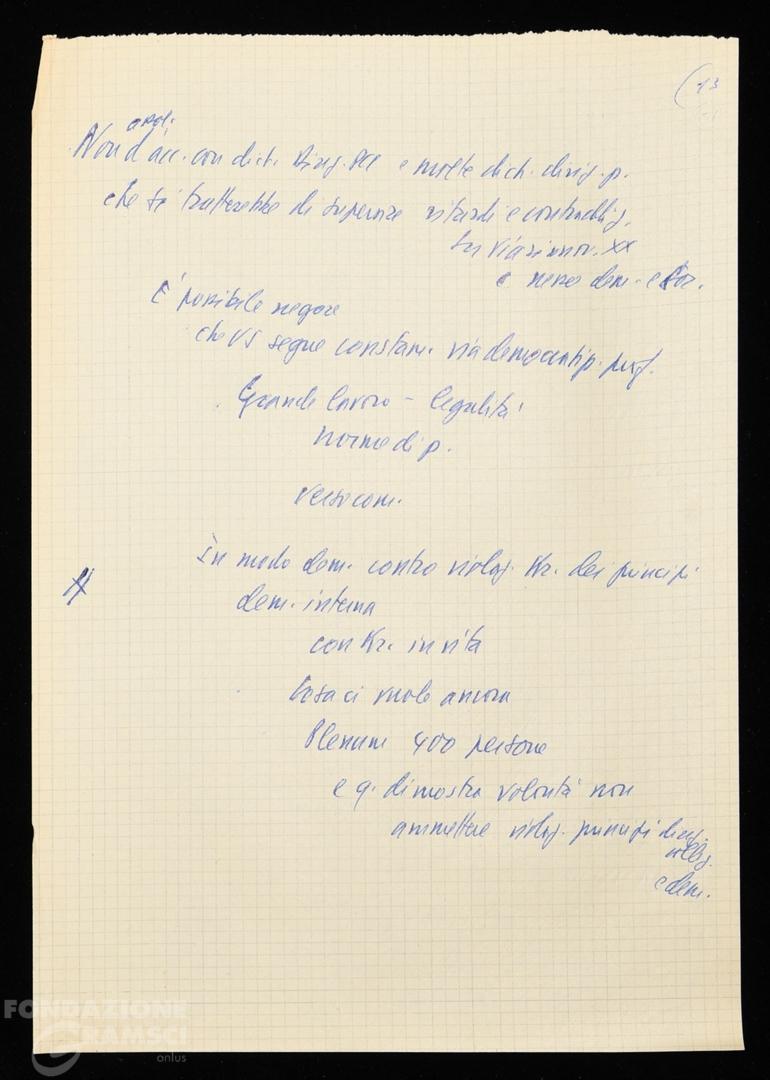 (13
Non d'acc. con dich. Direz. PCI e molte dich. dirig. p.
che si tratterebbe di superare ritardi e contraddiz.
su via rinnov. XX
e nesso dem. e
È possibile negare
che US segue constam. via democratiz.
Grande lavoro - legalità
norme di p.
Verso com.
In modo dem. contro violaz. Kr. dei principi
dem. interna
con Kr. in vita
Cosa ci vuole ancora
Plenum 400 persone
e q. dimostra volontà non
ammettere violaz. principi direz.
colleg.
e dem.
FONDAZIONE
GRAMSCI
onlus